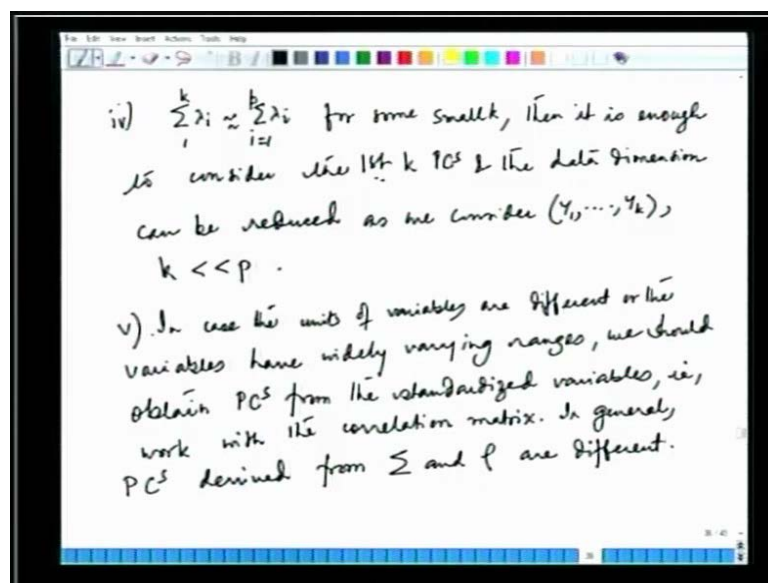 File Edit View Insert Actions Tools Help
iv) $\sum_{1}^{k} \lambda_i \approx \sum_{i=1}^{p} \lambda_i$ for some small k, then it is enough
to consider the 1st k PCs & the data dimension
can be reduced as we consider (Y₁, ..., Y_k),
k << p .
v). In case the units of variables are different or the
variables have widely varying ranges, we should
obtain PCs from the standardized variables, ie,
work with the correlation matrix. In general,
PCs derived from Σ and ρ are different.